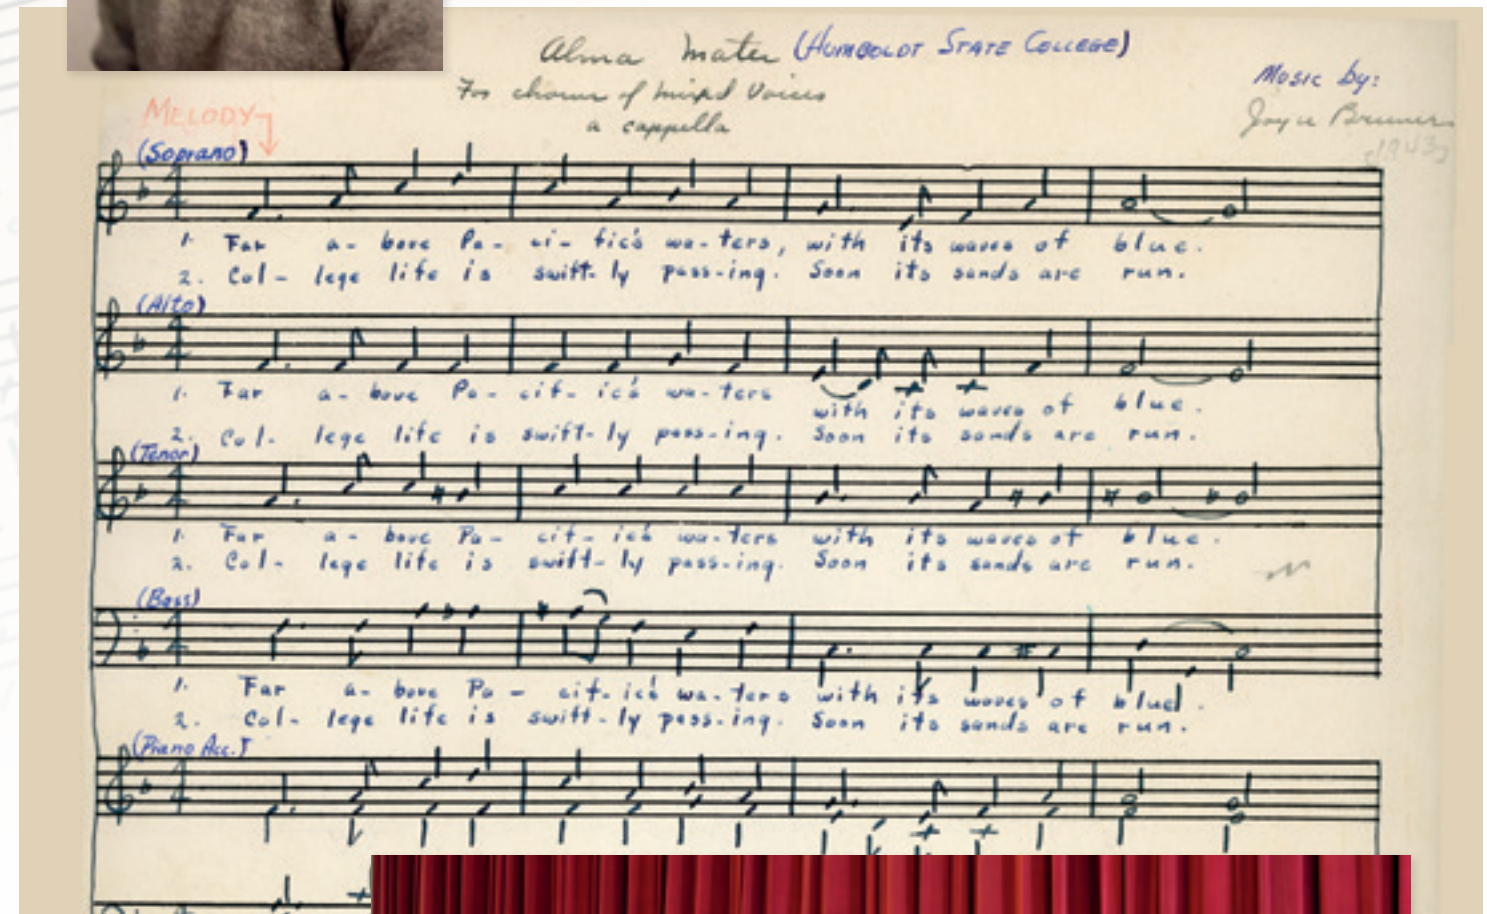 Alma Mater (HUMBOLDT STATE COLLEGE)
Music by:
For chorus of mixed Voices
a cappella
Joyce Bruner
MELODY
(Soprano)
1. Far a- bove Pa- ci- fic's wa- ters, with its waves of blue.
2. Col- lege life is swift- ly pass- ing. Soon its sands are run.
(Alto)
1. Far a- bove Pa- cif- ic's wa- ters with its waves of blue.
2. Col- lege life is swift- ly pass- ing. Soon its sands are run.
(Tenor)
1. Far a- bove Pa- cif- ic's wa- ters with its waves of blue.
2. Col- lege life is swift- ly pass- ing. Soon its sands are run.
(Bass)
1. Far a- bove Pa- cif- ic's wa- ters with its waves of blue.
2. Col- lege life is swift- ly pass- ing. Soon its sands are run.
(Piano Acc.)